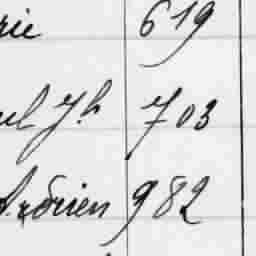 rie 619
ul J.h 703
Adrien 982